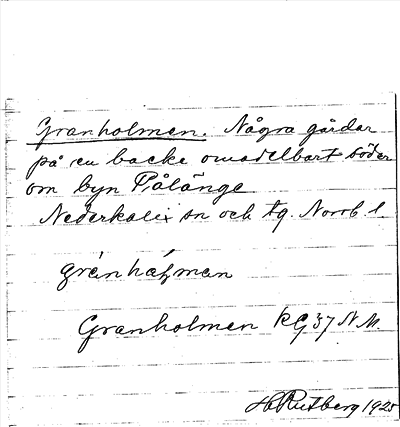 Granholmen. Några gårdar
på en backe omedelbart söder
om byn Pålänge
Nederkalix sn och tg. Norrb. l.
Granholmen RG 37 N.M.
H Rutberg 1925